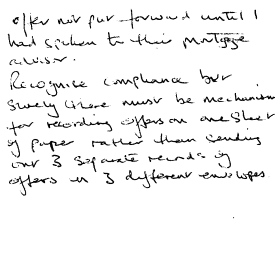 offer not put forward until I
had spoken to their mortgage
advisor.
Recognise compliance but
surely there must be mechanism
for recording offers on one sheet
of paper rather than sending
out 3 separate records of
offers in 3 different envelopes.